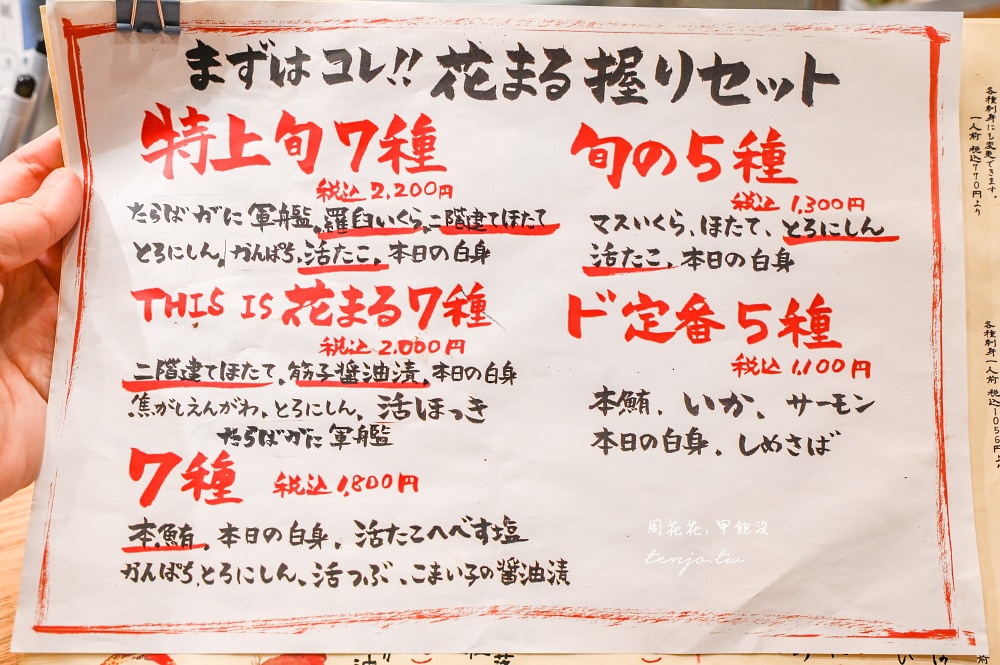 まずはコレ!! 花まる握りセット
特上旬7種
税込 2,200円
たらばがに軍艦、羅臼いくら、二階建てほたて
とろにしん、かんぱち、活たこ、本日の白身
THIS IS 花まる7種
税込 2,000円
二階建てほたて、筋子醤油漬、本日の白身
焦がしえんがわ、とろにしん、活ほっき
たらばがに軍艦
7種 税込 1,800円
本鮪、本日の白身、活たこへべす塩
かんぱち、とろにしん、活つぶ、こまい子の醤油漬
旬の5種
税込 1,300円
マスいくら、ほたて、とろにしん
活たこ、本日の白身
ド定番5種
税込 1,100円
本鮪、いか、サーモン
本日の白身、しめさば
周花花，甲飽沒
tenjo.tw
各種刺身にも変更できます。
一人前 税込770円より
各種刺身一人前 税込1056円より